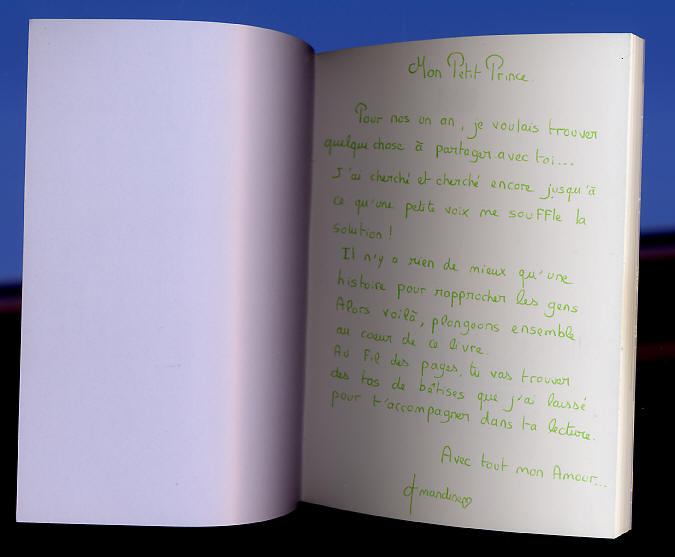 Mon Petit Prince.
Pour nos un an, je voulais trouver
quelque chose à partager avec toi...
J'ai cherché et cherché encore jusqu'à
ce qu'une petite voix me souffle la
solution!
Il n'y a rien de mieux qu'une
histoire pour rapprocher les gens
Alors voilà, plongeons ensemble
au coeur de ce livre.
Au fil des pages, tu vas trouver
des tas de bêtises que j'ai laissé
pour t'accompagner dans ta lecture.
Avec tout mon Amour...
Amandine